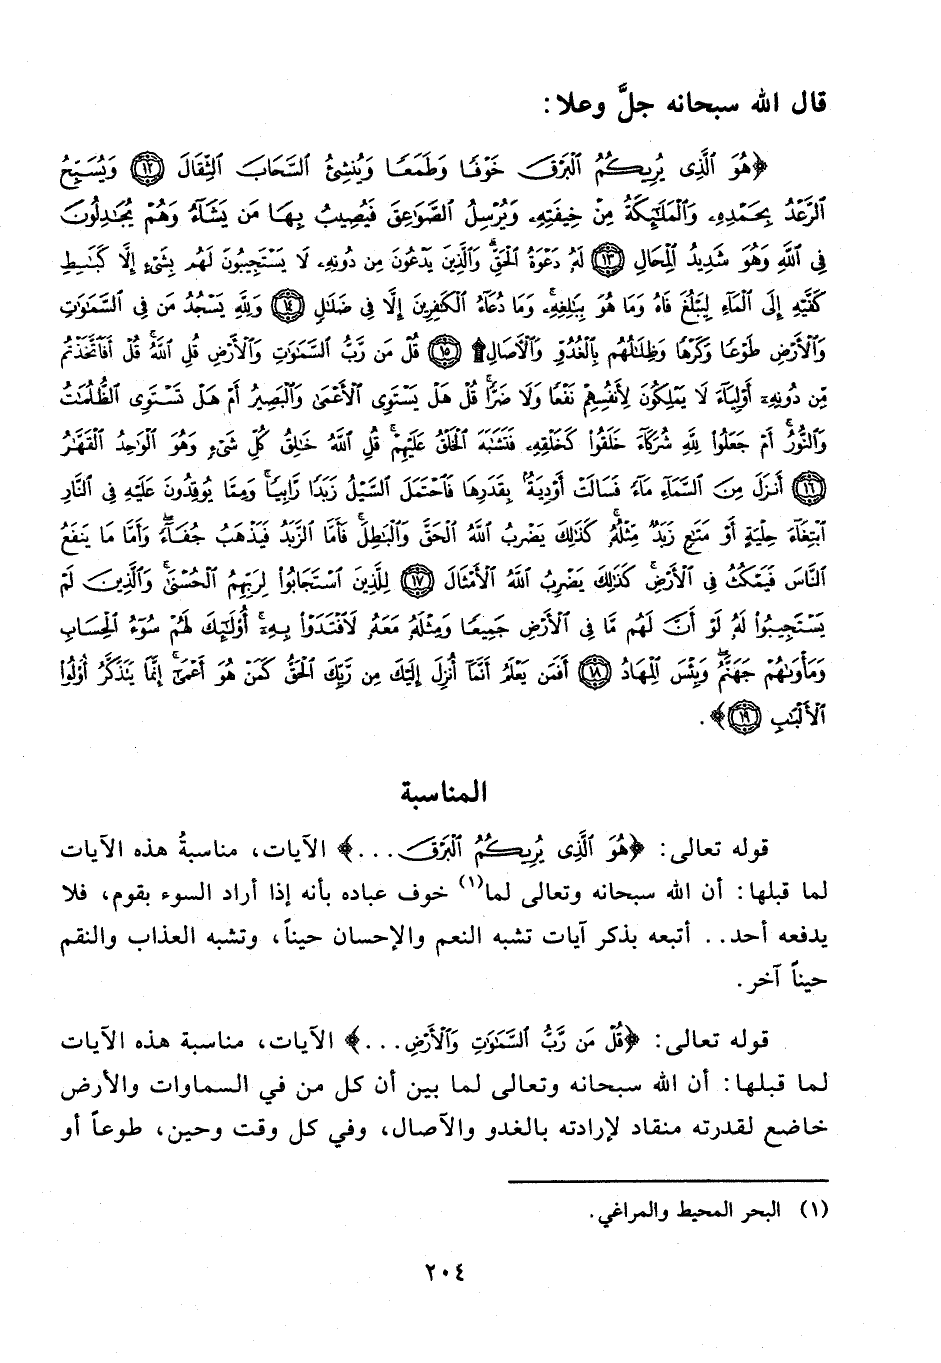 قال الله سبحانه جلَّ وعلا:
﴿هُوَ ٱلَّذِى يُرِيكُمُ ٱلْبَرْقَ خَوْفًا وَطَمَعًا وَيُنشِئُ ٱلسَّحَابَ ٱلثِّقَالَ ١٢ وَيُسَبِّحُ
ٱلرَّعْدُ بِحَمْدِهِۦ وَٱلْمَلَٰٓئِكَةُ مِنْ خِيفَتِهِۦ وَيُرْسِلُ ٱلصَّوَٰعِقَ فَيُصِيبُ بِهَا مَن يَشَآءُ وَهُمْ يُجَٰدِلُونَ
فِى ٱللَّهِ وَهُوَ شَدِيدُ ٱلْمِحَالِ ١٣ لَهُۥ دَعْوَةُ ٱلْحَقِّ ۖ وَٱلَّذِينَ يَدْعُونَ مِن دُونِهِۦ لَا يَسْتَجِيبُونَ لَهُم بِشَىْءٍ إِلَّا كَبَٰسِطِ
كَفَّيْهِ إِلَى ٱلْمَآءِ لِيَبْلُغَ فَاهُ وَمَا هُوَ بِبَٰلِغِهِۦ ۚ وَمَا دُعَآءُ ٱلْكَٰفِرِينَ إِلَّا فِى ضَلَٰلٍ ١٤ وَلِلَّهِ يَسْجُدُ مَن فِى ٱلسَّمَٰوَٰتِ
وَٱلْأَرْضِ طَوْعًا وَكَرْهًا وَظِلَٰلُهُم بِٱلْغُدُوِّ وَٱلْءَاصَالِ ۩ ١٥ قُلْ مَن رَّبُّ ٱلسَّمَٰوَٰتِ وَٱلْأَرْضِ قُلِ ٱللَّهُ ۚ قُلْ أَفَٱتَّخَذْتُم
مِّن دُونِهِۦٓ أَوْلِيَآءَ لَا يَمْلِكُونَ لِأَنفُسِهِمْ نَفْعًا وَلَا ضَرًّا ۚ قُلْ هَلْ يَسْتَوِى ٱلْأَعْمَىٰ وَٱلْبَصِيرُ أَمْ هَلْ تَسْتَوِى ٱلظُّلُمَٰتُ
وَٱلنُّورُ ۗ أَمْ جَعَلُوا۟ لِلَّهِ شُرَكَآءَ خَلَقُوا۟ كَخَلْقِهِۦ فَتَشَٰبَهَ ٱلْخَلْقُ عَلَيْهِمْ ۚ قُلِ ٱللَّهُ خَٰلِقُ كُلِّ شَىْءٍ وَهُوَ ٱلْوَٰحِدُ ٱلْقَهَّٰرُ
١٦ أَنزَلَ مِنَ ٱلسَّمَآءِ مَآءً فَسَالَتْ أَوْدِيَةٌۢ بِقَدَرِهَا فَٱحْتَمَلَ ٱلسَّيْلُ زَبَدًا رَّابِيًا ۚ وَمِمَّا يُوقِدُونَ عَلَيْهِ فِى ٱلنَّارِ
ٱبْتِغَآءَ حِلْيَةٍ أَوْ مَتَٰعٍ زَبَدٌ مِّثْلُهُۥ ۚ كَذَٰلِكَ يَضْرِبُ ٱللَّهُ ٱلْحَقَّ وَٱلْبَٰطِلَ ۚ فَأَمَّا ٱلزَّبَدُ فَيَذْهَبُ جُفَآءً ۖ وَأَمَّا مَا يَنفَعُ
ٱلنَّاسَ فَيَمْكُثُ فِى ٱلْأَرْضِ ۚ كَذَٰلِكَ يَضْرِبُ ٱللَّهُ ٱلْأَمْثَالَ ١٧ لِلَّذِينَ ٱسْتَجَابُوا۟ لِرَبِّهِمُ ٱلْحُسْنَىٰ ۚ وَٱلَّذِينَ لَمْ
يَسْتَجِيبُوا۟ لَهُۥ لَوْ أَنَّ لَهُم مَّا فِى ٱلْأَرْضِ جَمِيعًا وَمِثْلَهُۥ مَعَهُۥ لَٱفْتَدَوْا۟ بِهِۦٓ ۚ أُو۟لَٰٓئِكَ لَهُمْ سُوٓءُ ٱلْحِسَابِ
وَمَأْوَىٰهُمْ جَهَنَّمُ ۖ وَبِئْسَ ٱلْمِهَادُ ١٨ أَفَمَن يَعْلَمُ أَنَّمَآ أُنزِلَ إِلَيْكَ مِن رَّبِّكَ ٱلْحَقُّ كَمَنْ هُوَ أَعْمَىٰٓ ۚ إِنَّمَا يَتَذَكَّرُ أُو۟لُوا۟
ٱلْأَلْبَٰبِ ١٩﴾.
المناسبة
قوله تعالى: ﴿هُوَ ٱلَّذِى يُرِيكُمُ ٱلْبَرْقَ...﴾ الآيات، مناسبةُ هذه الآيات
لما قبلها: أن الله سبحانه وتعالى لما(١) خوف عباده بأنه إذا أراد السوء بقوم، فلا
يدفعه أحد.. أتبعه بذكر آيات تشبه النعم والإحسان حيناً، وتشبه العذاب والنقم
حيناً آخر.
قوله تعالى: ﴿قُلْ مَن رَّبُّ ٱلسَّمَٰوَٰتِ وَٱلْأَرْضِ...﴾ الآيات، مناسبة هذه الآيات
لما قبلها: أن الله سبحانه وتعالى لما بين أن كل من في السماوات والأرض
خاضع لقدرته منقاد لإرادته بالغدو والآصال، وفي كل وقت وحين، طوعاً أو
(١) البحر المحيط والمراغي.
٢٠٤